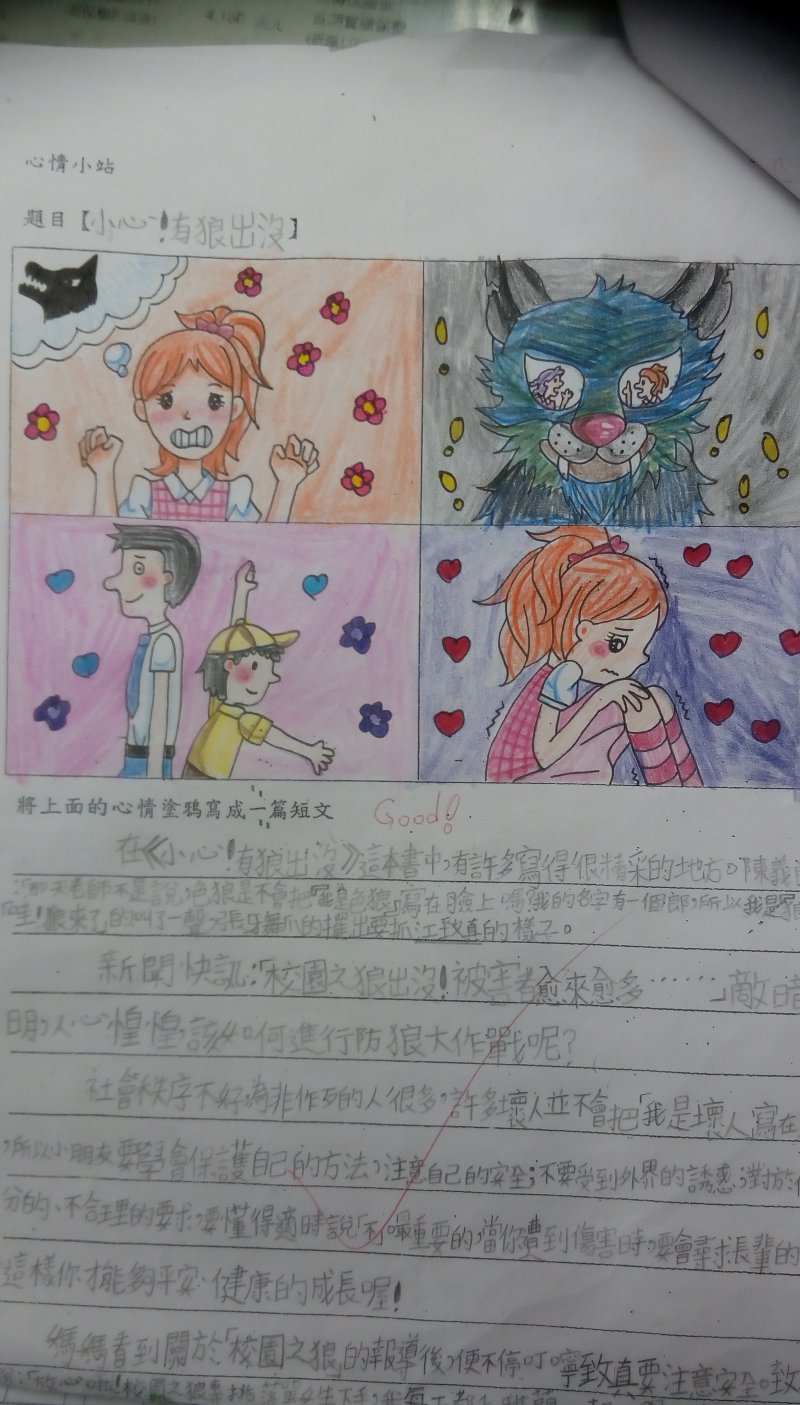 4,180 美元
心情小站
題目【小心!有狼出沒】
將上面的心情塗鴉寫成一篇短文
Good!
在《小心!有狼出沒》這本書中,有許多寫得很精采的地方。陳義
:「那天老師不是說,色狼是不會把「我是色狼」寫在臉上嗎?我的名字有一個郎,所以我是
「哇!狼來了」的叫了一聲,張牙舞爪的擺出要抓江致真的樣子。
新聞快訊:「校園之狼出沒!被害者愈來愈多……」敵暗
明,人心惶惶,該如何進行防狼大作戰呢?
社會秩序不好,為非作歹的人很多,許多壞人並不會把「我是壞人」寫在
,所以小朋友要學會保護自己的方法,注意自己的安全;不要受到外界的誘惑;對於
分的、不合理的要求,要懂得適時說「不」。最重要的,當你遭到傷害時,要會尋求長輩的
這樣你才能夠平安、健康的成長喔!
媽媽看到關於「校園之狼」的報導後,便不停叮嚀致真要注意安全。致
:「放心啦!校園之狼專挑落單女生下手,我每天都